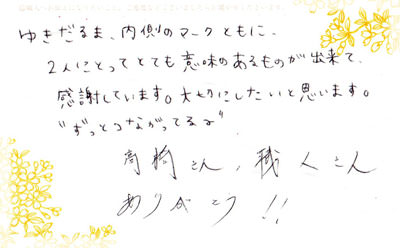 ゆきだるま、内側のマークともに、
2人にとってとても意味のあるものが出来て、
感謝しています。大切にしたいと思います。
"ずっとつながってるよ"
高橋さん、職人さん
ありがとう!!